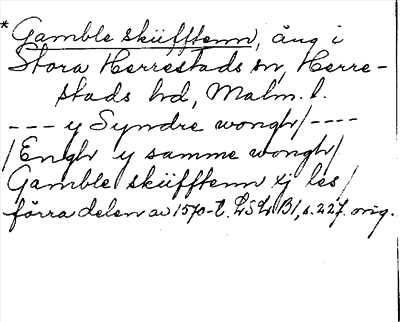 *Gamble sküfftenn, äng i
Stora Herrestads sn, Herre-
stads hd, Malm. l.
--- y Syndre wongh/----
/Engh y samme wongh/
Gamble sküfftenn xj les/
förra delen av 1570-t. LSLB1, s. 227. orig.